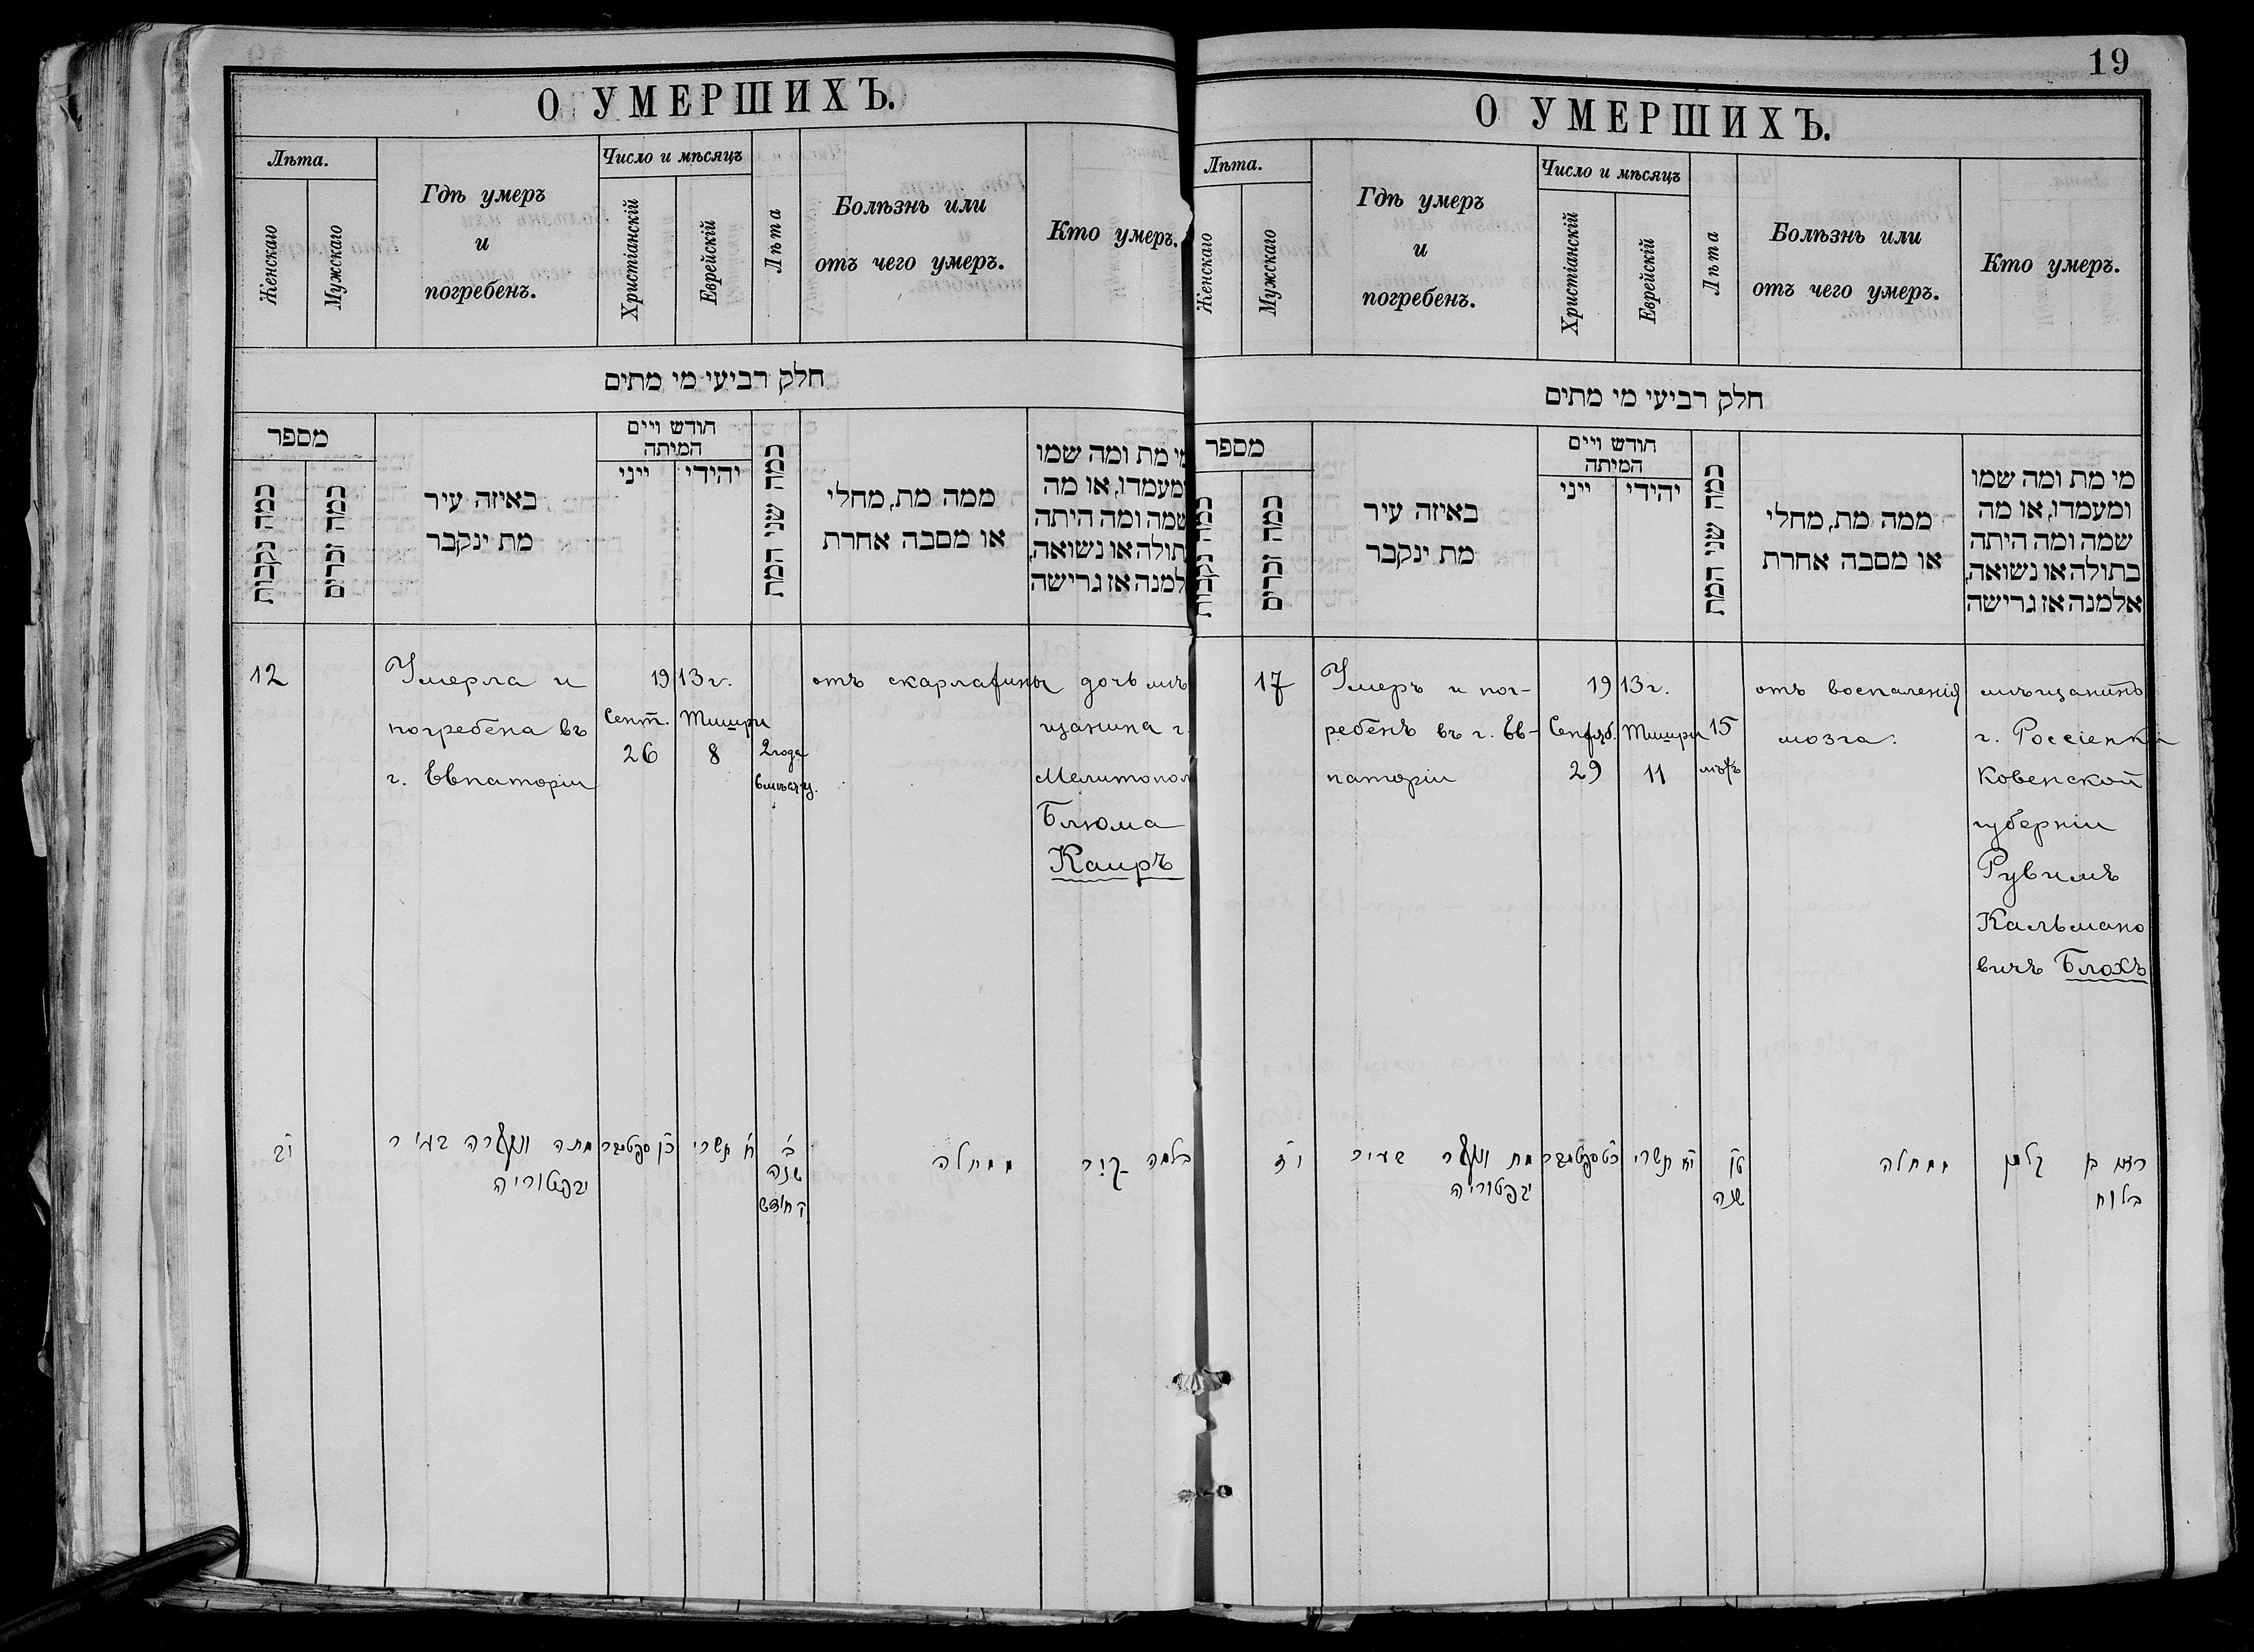 О УМЕРШИХЪ.
Лѣта.
Женскаго
Мужскаго
Гдѣ умеръ
и
погребенъ.
Число и мѣсяцъ
Христіанскій
Еврейскій
Лѣта
Болѣзнь или
отъ чего умеръ.
Кто умеръ.
חלק רביעי מי מתים
מספר
כמה נקבות
כמה זכרים
באיזה עיר
מת ינקבר
חודש ויים
המיתה
ייני
יהודי
כמה שני המת
ממה מת, מחלי
או מסבה אחרת
מי מת ומה שמו
ומעמדו, או מה
שמה ומה היתה
תולה או נשואה,
למנה אז גרישה
12
Умерла и
погребена въ
г. Евпаторіи
1913 г.
Сент. Тишри
26 8
2 года
6 мѣсяц.
отъ скарлатины
дочь мѣ
щанина г.
Мелитопол
Блюма
Каиръ
י״ב
מתה ונקברה בעיר
יבפטוריה
כ״ו ספטמבר
ח׳ תשרי
ב׳
שנה
ו׳ חודש
ממחלה
בלומה
19
О УМЕРШИХЪ.
Лѣта.
Женскаго
Мужскаго
Гдѣ умеръ
и
погребенъ.
Число и мѣсяцъ
Христіанскій
Еврейскій
Лѣта
Болѣзнь или
отъ чего умеръ.
Кто умеръ.
חלק רביעי מי מתים
מספר
כמה נקבות
כמה זכרים
באיזה עיר
מת ינקבר
חודש ויים
המיתה
ייני
יהודי
כמה שני המת
ממה מת, מחלי
או מסבה אחרת
מי מת ומה שמו
ומעמדו, או מה
שמה ומה היתה
בתולה או נשואה,
אלמנה אז גרישה
17
Умеръ и пог-
ребенъ въ г. Ев-
паторіи
1913 г.
Сентяб. Тишри
29 11
15
лѣтъ
отъ воспаленія
мозга.
мѣщанинъ
г. Россіенка
Ковенской
губерніи
Рувимъ
Кальмано
вичъ Блохъ
י״ז
מת ונקבר בעיר
יבפטוריה
כ״ט ספטמבר
י״א תשרי
ט״ו
שנה
ממחלה
בן קלמן
בלוח